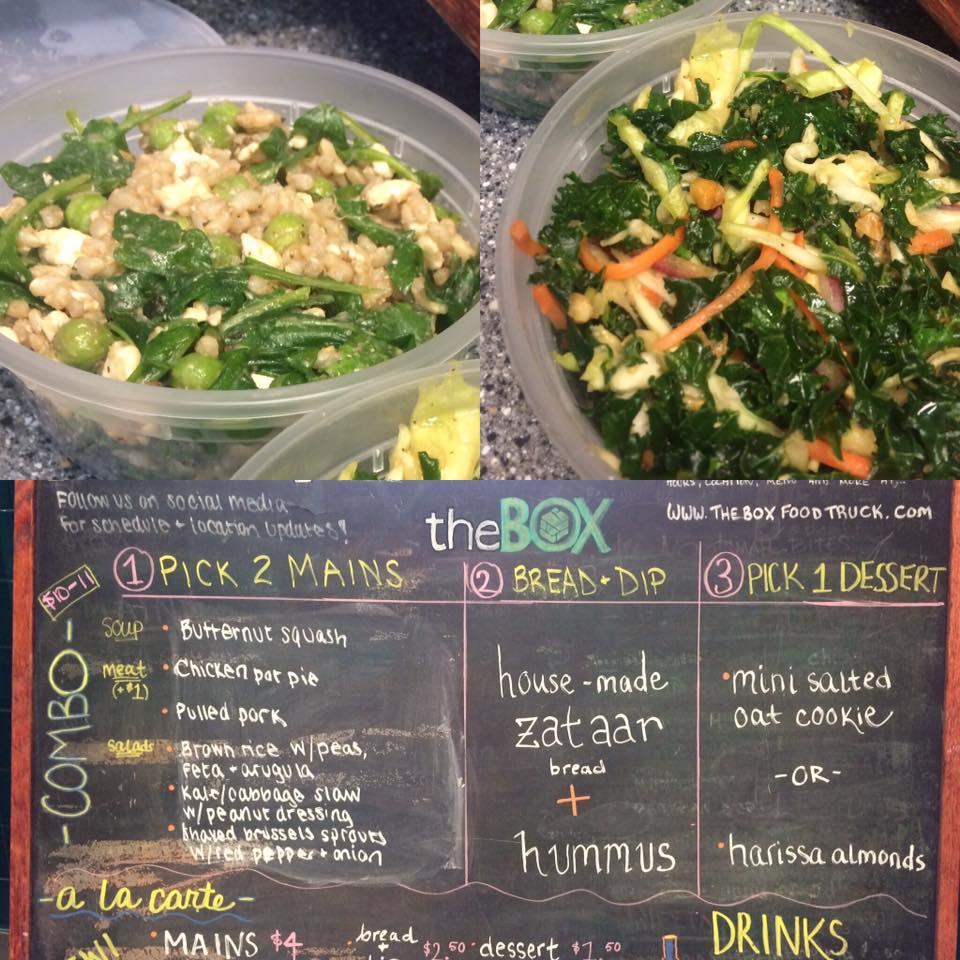 Follow us on social media
for schedule + location updates!
theBOX
HOURS, LOCATION, MENU AND MORE AT...
WWW.THEBOXFOODTRUCK.COM
$10-11
-COMBO-
① PICK 2 MAINS
soup
• Butternut squash
meat
(+$1)
• Chicken pot pie
• Pulled pork
salads
• Brown rice w/peas,
feta + arugula
• Kale/cabbage slaw
w/peanut dressing
• Shaved brussels sprouts
w/red pepper + onion
② BREAD + DIP
house-made
zataar
bread
+
hummus
③ PICK 1 DESSERT
• mini salted
oat cookie
-OR-
• harissa almonds
-a la carte-
• MAINS $4
• bread
+
$2.50
• dessert $1.50
DRINKS